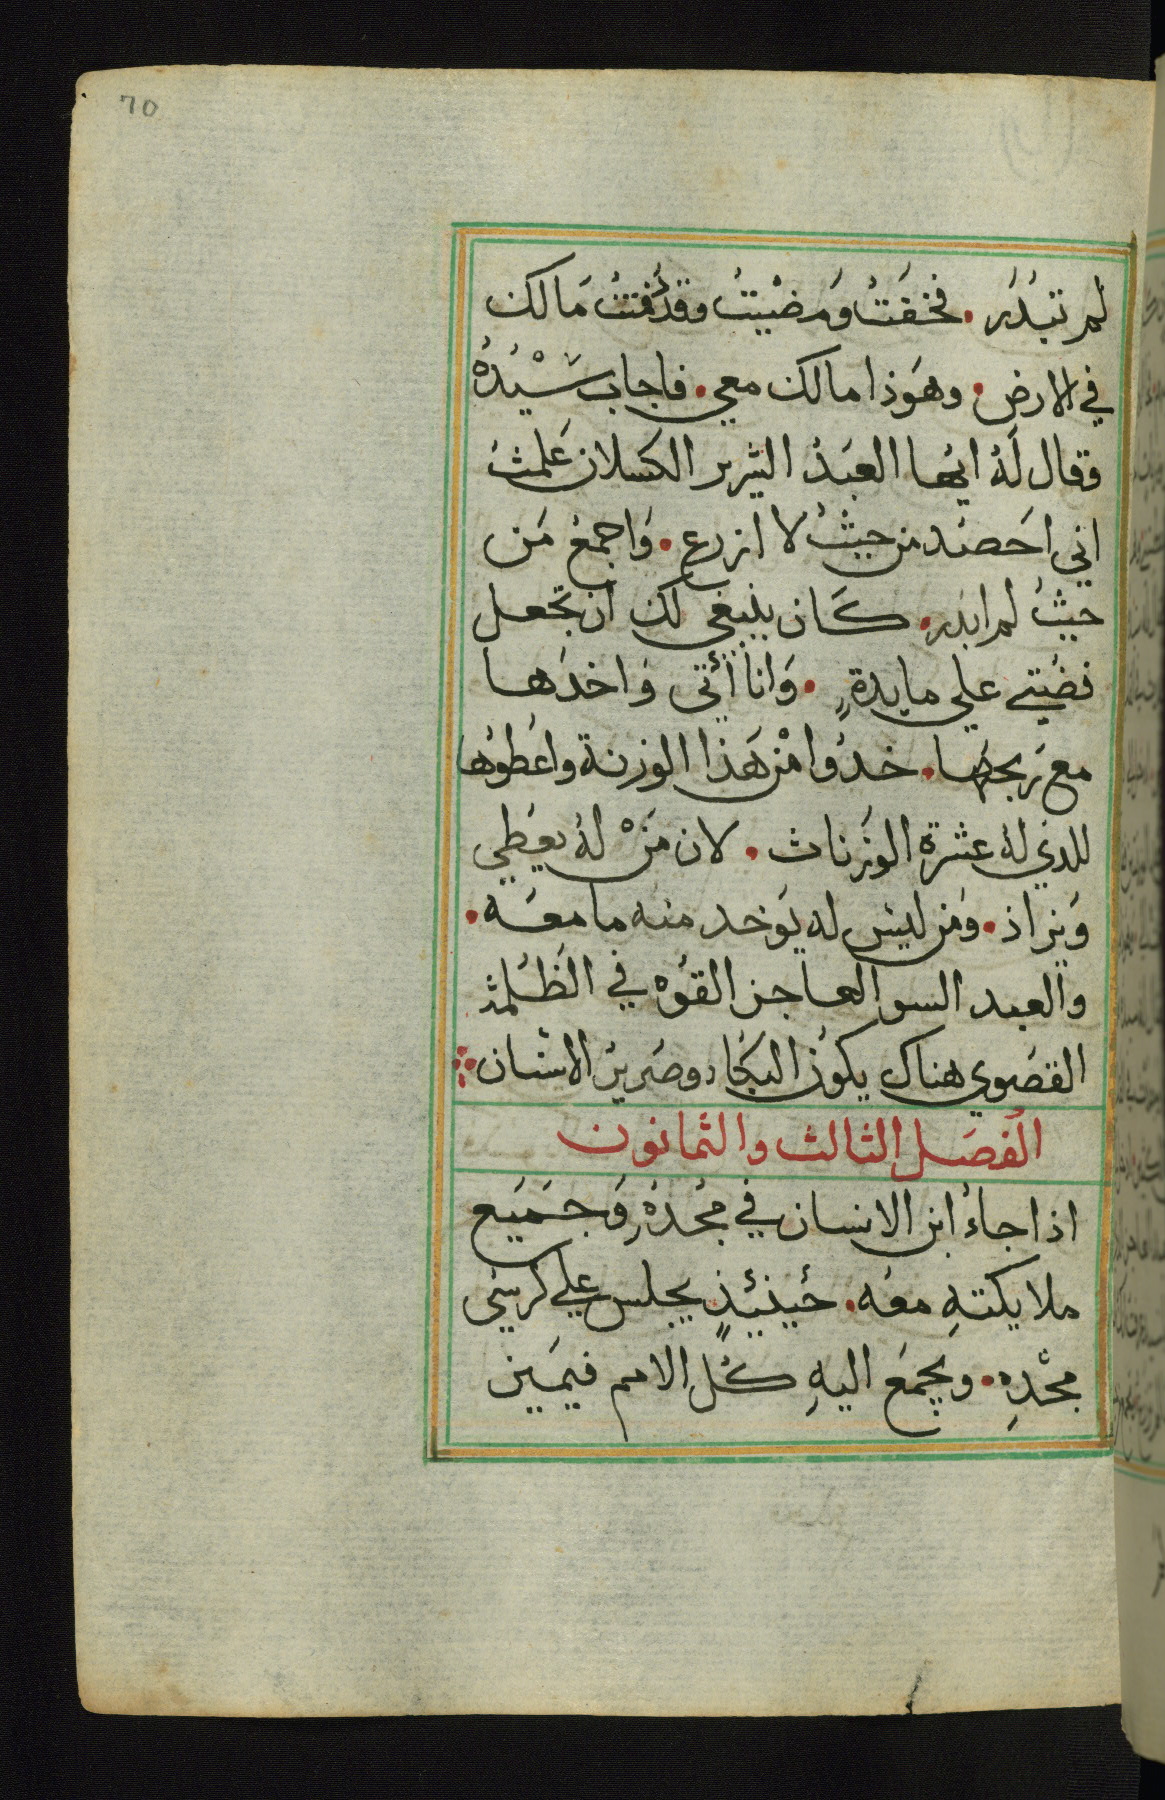 70
لم تبدر . فخفت ومضيت ودفنت مالك
في الارض . وهوذا مالك معي . فاجاب سيده
وقال له ايها العبد الشرير الكسلان علمت
اني احصد من حيث لا ازرع . واجمع من
حيث لم ابدر . كان ينبغي لك ان تجعل
فضتي علي مايدة . وانا آتي واخدها
مع ربحها . خدوا من هذا الوزنة واعطوها
للدي له عشرة الوزنات . لان من له يعطي
ويزاد . ومن ليس له يوخد منه ما معه .
والعبد السو العاجز القوه في الظلمة
القصوي هناك يكون البكاء وصرير الاسنان
الفصل الثالث والثمانون
اذا جاء ابن الانسان في مجده وجميع
ملايكته معه . حينئذ يجلس علي كرسي
مجده . ويجمع اليه كل الامم فيميز